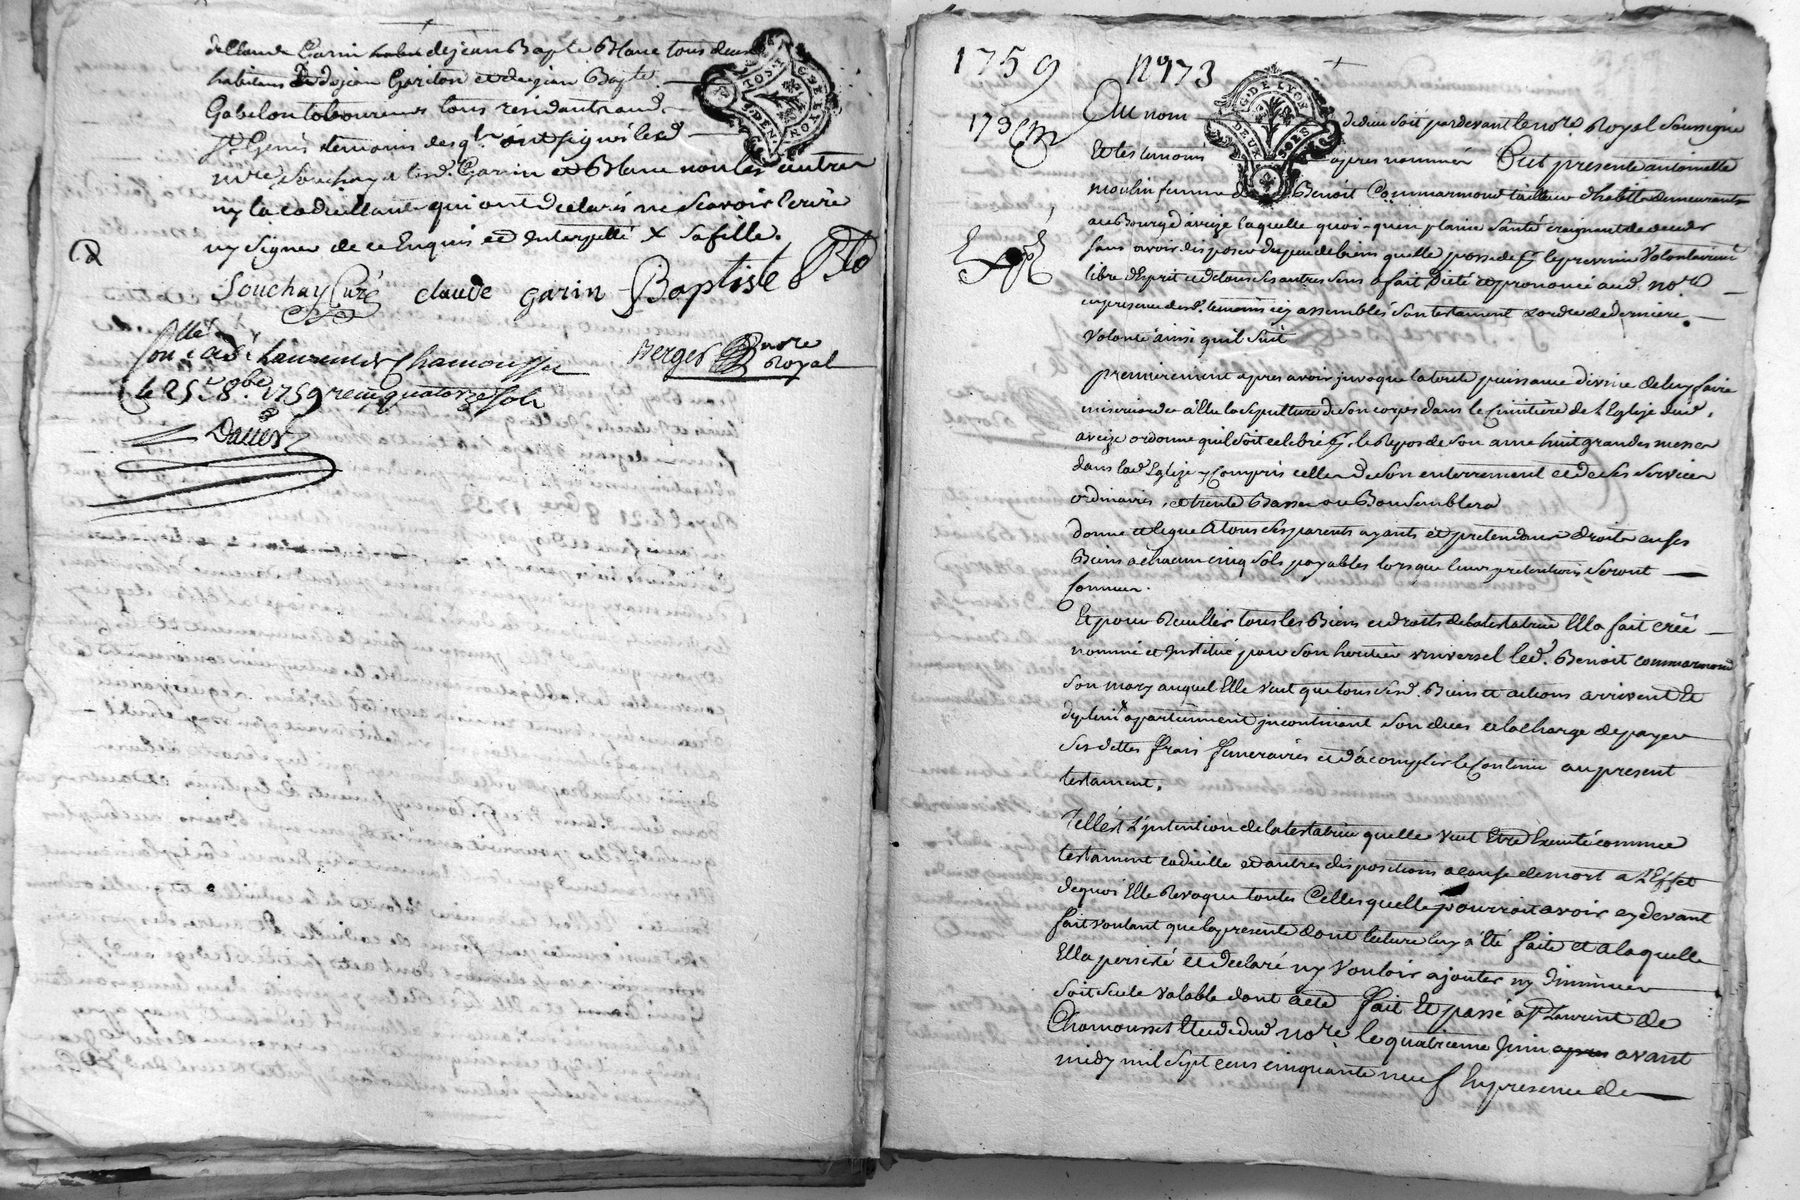 de Claude Garin habit. de jean Bapte Blanc tous deux
habitans Dud. jean Gariton et de jean Bapte.
Gabelon laboureurs tous residants aud.
st Genis temoins desq.ls ont signés led.
mre Souchay led. Garin et Blanc non les autres
ny la codicillante qui ont Declarés ne Scavoir Ecrire
ny Signer de ce Enquis et Interpellé X Safille.
Souchay Curé claude garin Baptiste Bla
Collé
Con. a St. Laurent de Chamousset Verger nore Royal
le 25e 8.bre 1759 recu quatorze sols
G. DE LYON
DEUX SOLS
1759 No 73
173
Au nom de dieu soit pardevant le nore Royal Soussigné
Et les temoins apres nommés Fut presente antoinette
moulin femme de Benoit Commarmond tailleur d'habits demeurants
au Bourg d'aveize laquelle quoi-qu'en plaine Santé craignant de deceder
Sans avoir disposé du peu de biens quelle possede Volontairement
libre d'Esprit et de tous ses autres sens a fait Dicté et prononcé aud. nore
en presence desd. temoins icy assemblés Son testament et ordre de derniere
Volonté ainsi qu'il Suit
premierement apres avoir invoque la toute puissance divine de luy faire
misericorde a Elu la Sepulture de Son corps dans le Cimitière de l'Eglize dud.
aveize ordonne quil Soit celebré pr. le Repos de Son ame huit grandes messes
dans lad. Eglize y Compris celles de Son enterrement et de Ses Services
ordinaires, et trente Basses ou Bon Semblera
donne et legue A tous Ses parents ayants et pretendant droits en Ses
Biens a chacun cinq Sols payables lorsque leurs pretentions Seront
Connues.
Et pour Recuillir tous les Biens et droits de la testatrice Ella fait créé
nommé et Institué pour Son heritier universel led. Benoit commarmond
Son mary auquel Elle Veut que tous Sesd. Biens et actions arrivent Et
de plein appartiennent incontinent Son deces a la charge de payer
Ses dettes frais funeraires et d'acomplir le Contenu au present
testament.
Tell'est L'intention de la testatrice quelle Veut Etre Executé comme
testament codicille et autres dispositions a cause de mort a L'Effet
dequoi Elle Revoque toutes Celles quelle pourroit avoir cy devant
fait voulant que la presente dont lecture luy a Eté faite et a laquelle
Ella persisté et declaré ny Vouloir ajouter ny Diminuer
Soit Seule Valable dont acte fait Et passé a St Laurent de
Chamousset Etude dud. nore le quatrieme Juin apres avant
midy mil Sept cens cinquante neuf En presence de